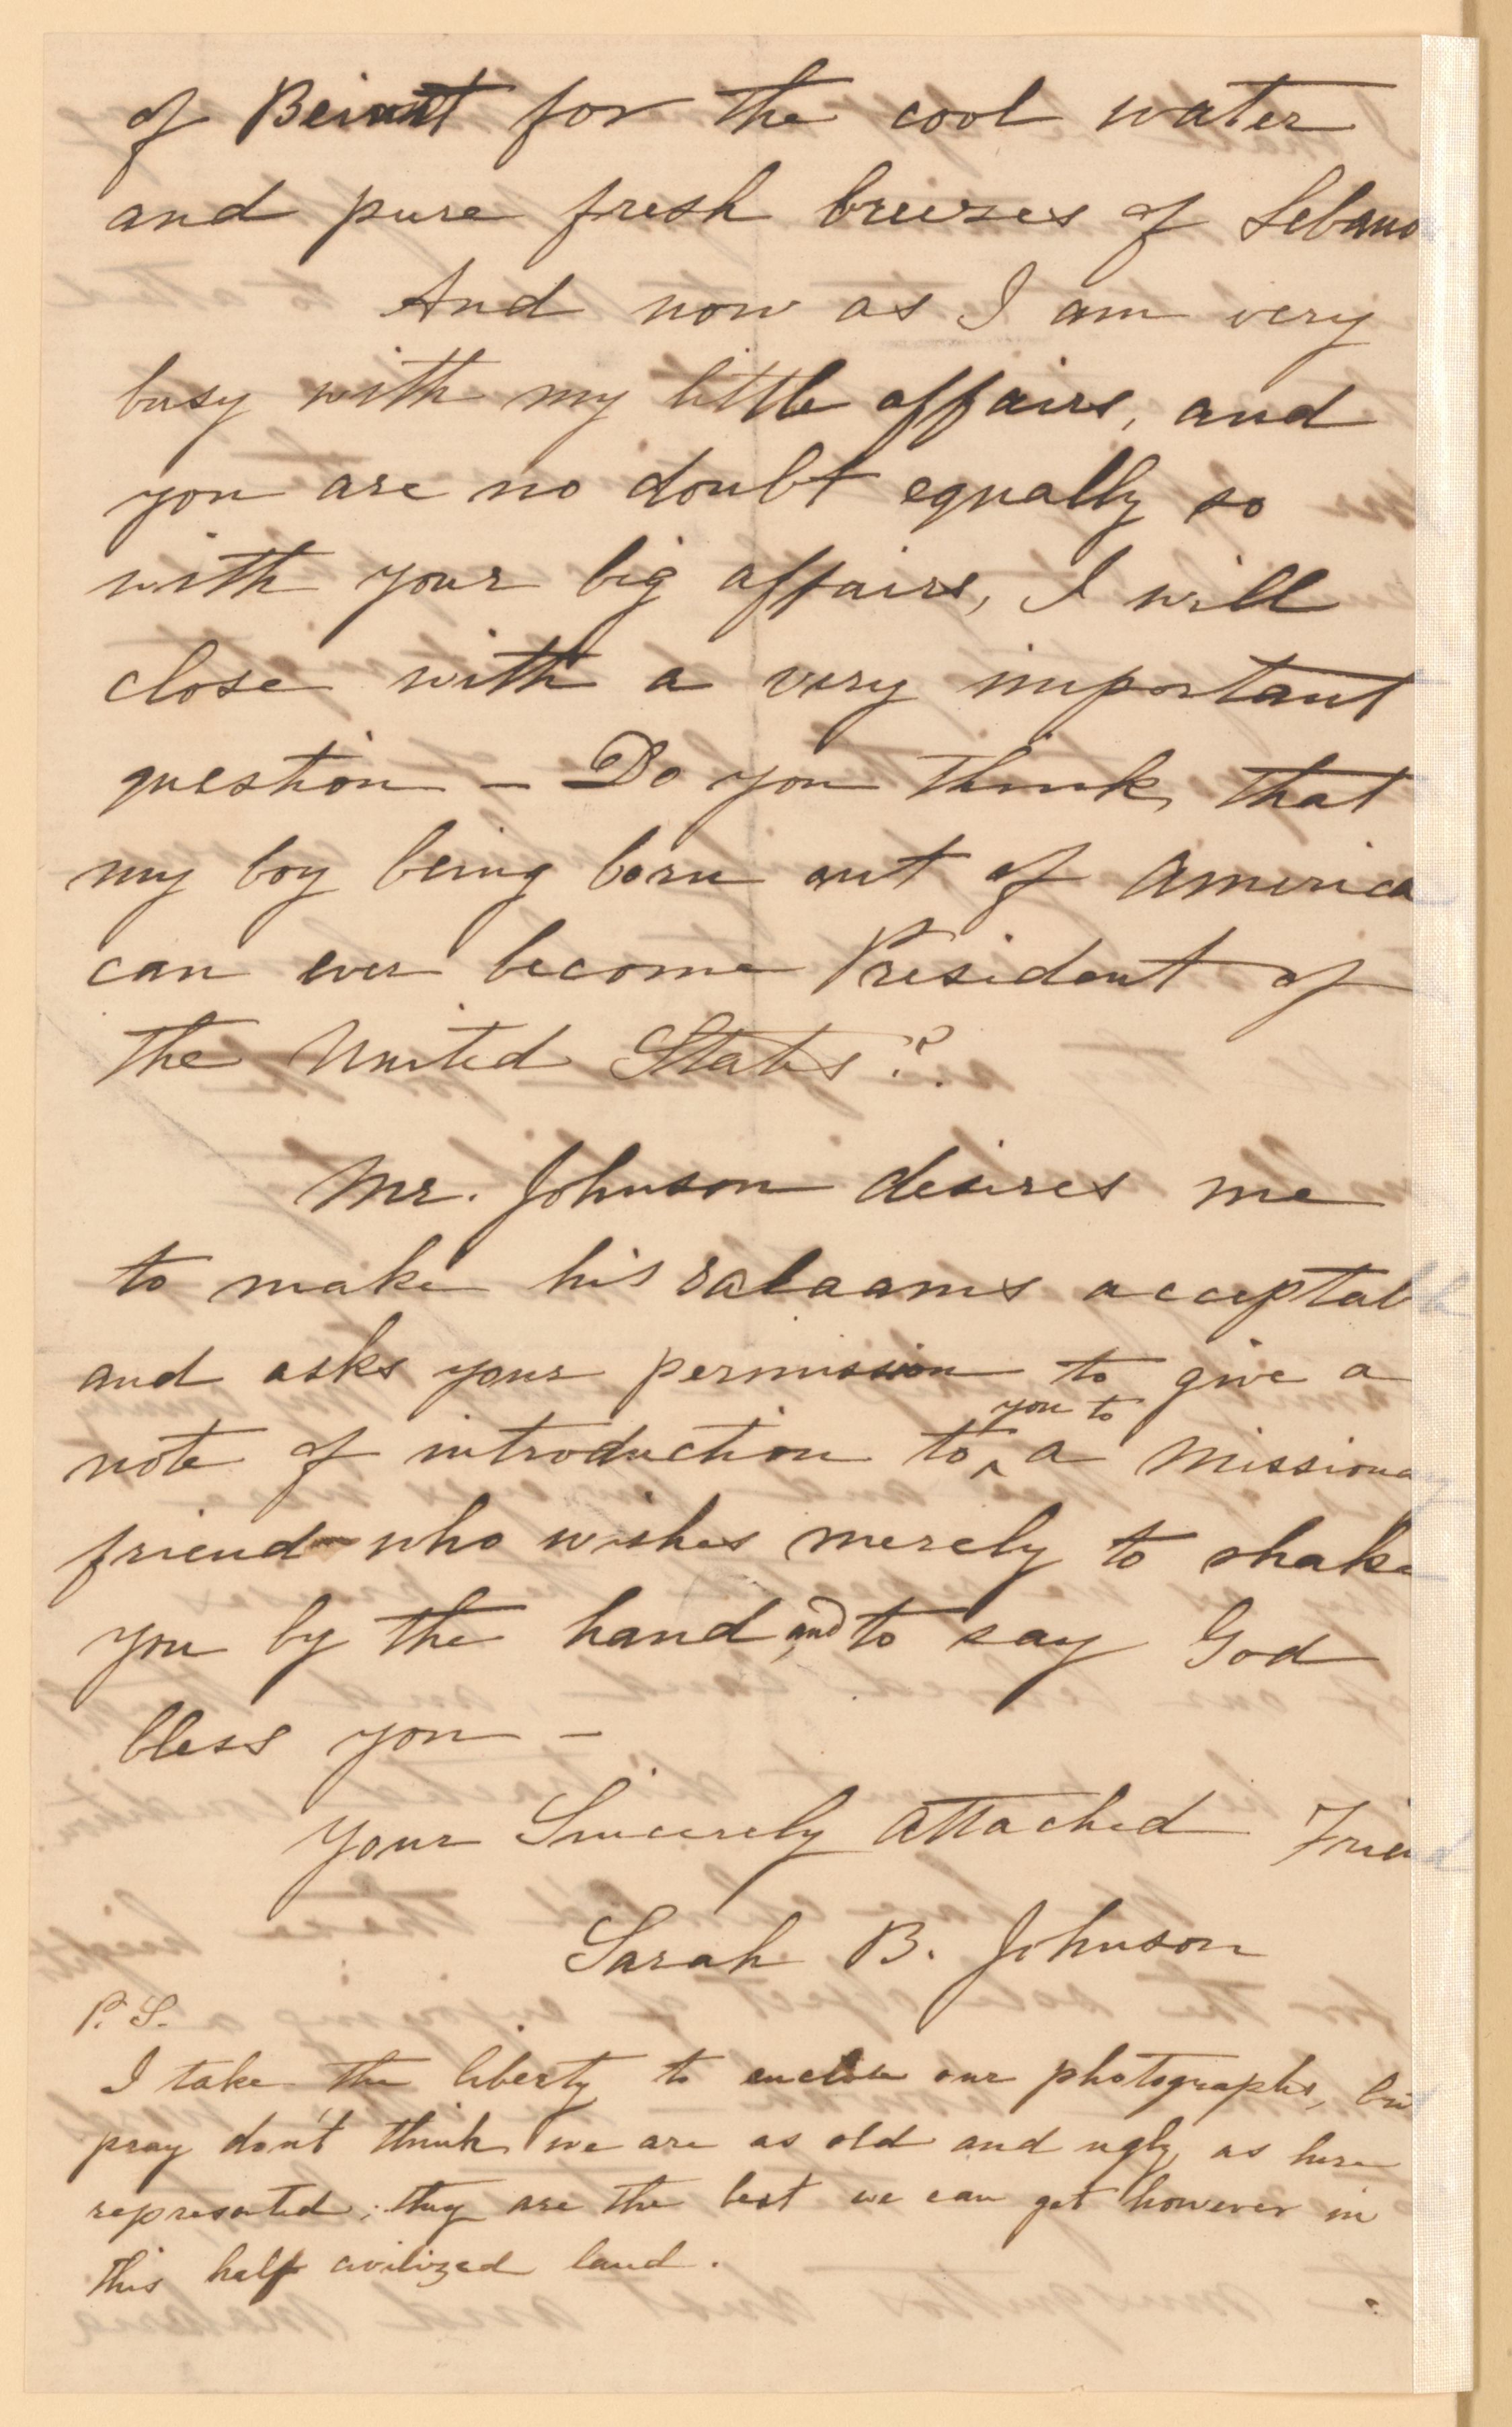 of Beirut for the cool water
and pure fresh breezes of Lebano
And now as I am very
busy with my little affairs, and
you are no doubt equally so
with your big affairs, I will
close with a very important
question – Do you think, that
my boy being born out of America
can ever become President of
the United States??
Mr. Johnson desires me
to make his salaams acceptable
and asks your permission to give a
you to
note of introduction to ‸ a Missionary
friend who wishes merely to shake
you by the hand, and to say God
bless you –
Your Sincerely attached Friend
Sarah B. Johnson
P. S.
I take the liberty to enclose our photographs, but
pray don't think we are as old and ugly as here
represented; they are the best we can get however in
this half civilized land.